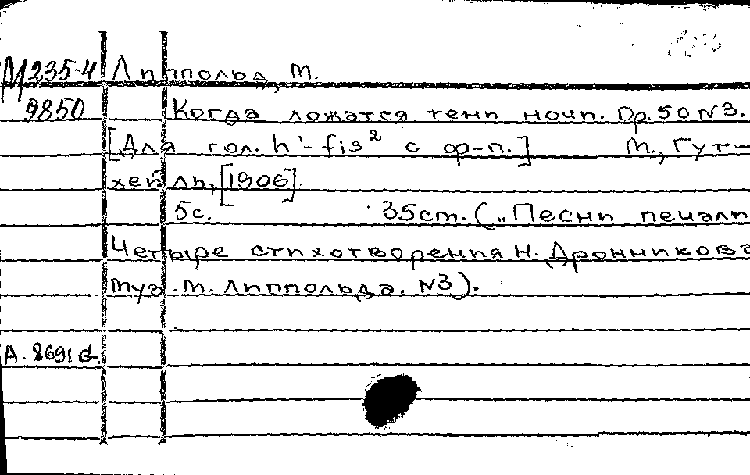 М235-4 Липпольд, М.
9850 Когда ложатся тени ночи. Op. 50 N3.
[Для гол. h¹-fis² с ф-п.] М., Гут-
хейль, [1906].
5с. 35см. („Песни печали
Четыре стихотворения Н. Дронникова
муз. М. Липпольда. N3).
А. 8691 d